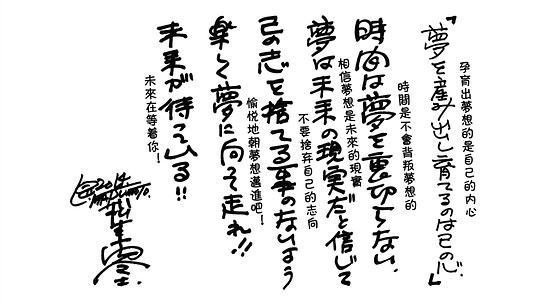 「夢を産み出し育てるのは己の心。」
孕育出夢想的是自己的內心
時間は夢を裏切らない。
時間是不會背叛夢想的
夢は未来の現実だと信じて
相信夢想是未來的現實
己の志を捨てる事のないよう
不要捨弃自己的志向
楽しく夢に向って走れ!!
愉悅地朝夢想邁進吧!
未来が待っている!!
未來在等着你!
2014